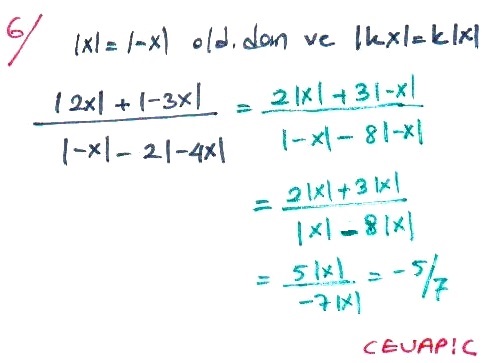 6/ |x| = |-x| old.dan ve |kx|=k|x|
|2x| + |-3x| / |-x| - 2|-4x| = 2|x| + 3|-x| / |-x| - 8|-x|
= 2|x| + 3|x| / |x| - 8|x|
= 5|x| / -7|x| = -5/7
CEVAP:C